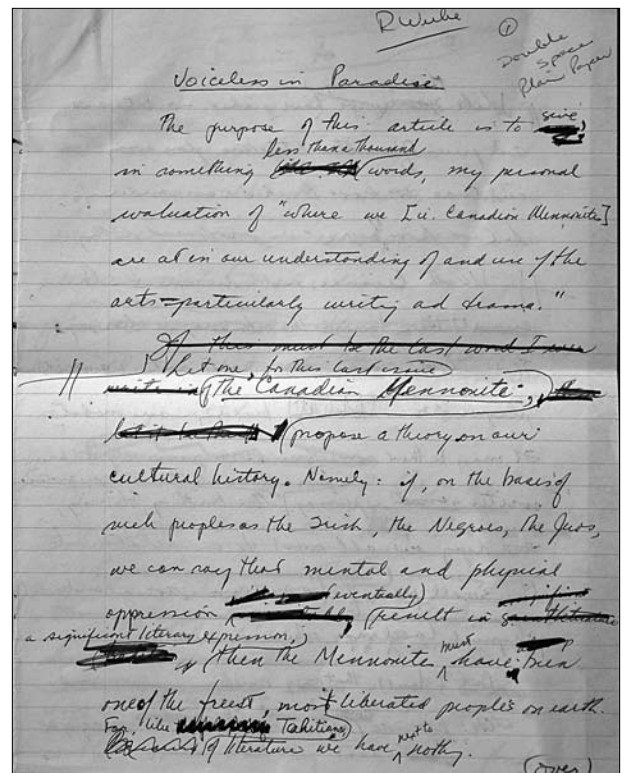 R Wiebe
①
Double
Space
Plain Paper
Voiceless in Paradise
The purpose of this article is to give,
less than a thousand
in something words, my personal
evaluation of "where we [i.e. Canadian Mennonite]
are at in our understanding of and use of the
arts—particularly writing and drama."
If this must be the last word I ever
Let me, for this last issue
write in of the Canadian Mennonite,
propose a theory on our
cultural history. Namely: if, on the basis of
such peoples as the Irish, the Negroes, the Jews,
we can say that mental and physical
eventually
oppression result in
a significant literary expression,
then the Mennonite must have been
one of the freest, most liberated peoples on earth.
For, like Tahitians,
of literature we have next to nothing.
(over)